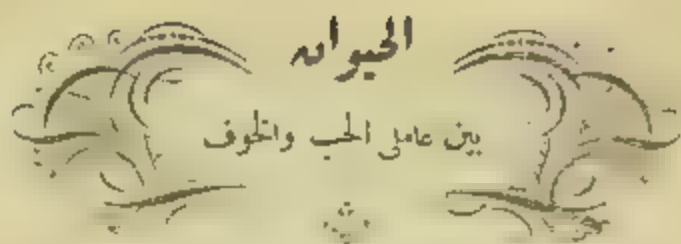 الحيوان
بين عاملي الحب والخوف